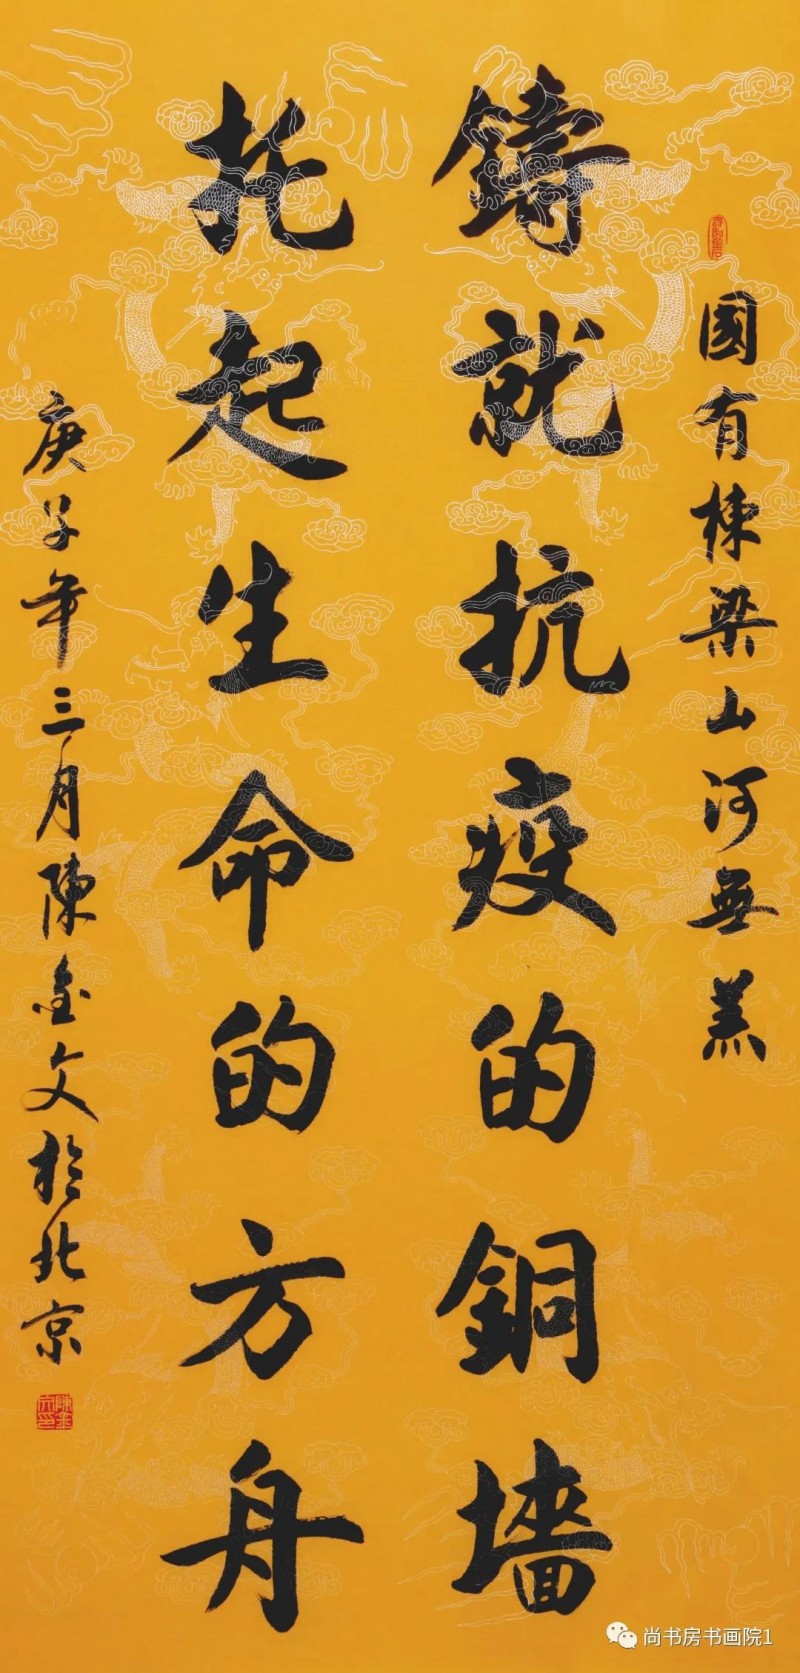 國有棟梁山河無恙
鑄就抗疫的銅墻
托起生命的方舟
庚子年三月陳金文於北京
尚书房书画院1